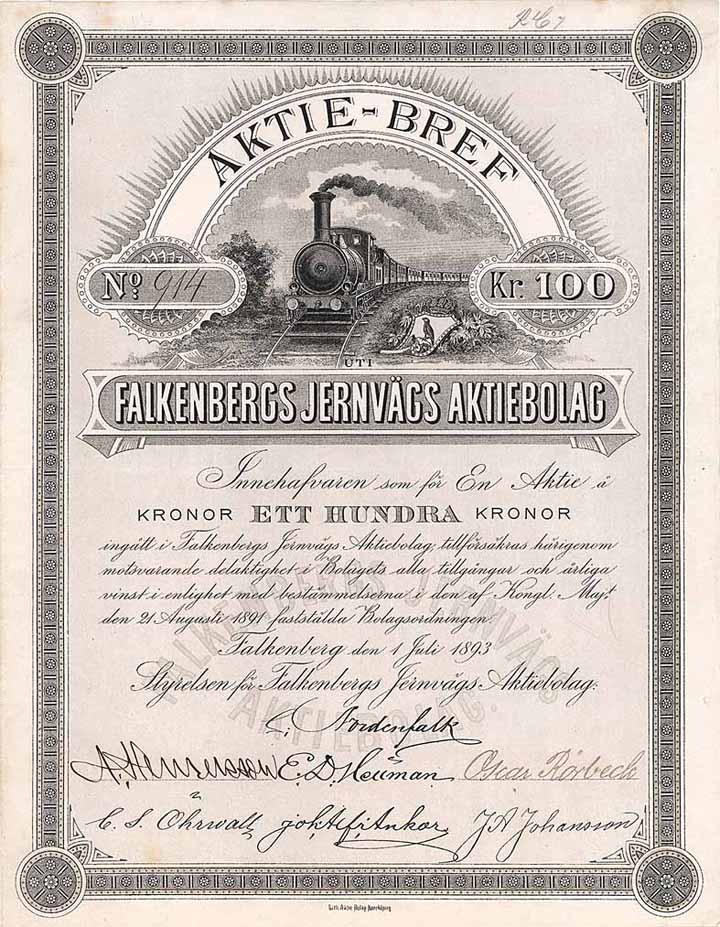 AKTIE-BREF
No. 914
Kr. 100
UTI
FALKENBERGS JERNVÄGS AKTIEBOLAG
Innehafvaren som för En Aktie à
KRONOR ETT HUNDRA KRONOR
ingått i Falkenbergs Jernvägs Aktiebolag, tillförsäkras härigenom
motsvarande delaktighet i Bolagets alla tillgångar och årliga
vinst i enlighet med bestämmelserna i den af Kongl. Maj:t
den 21 Augusti 1891 fastställda Bolagsordningen.
Falkenberg den 1 Juli 1893
Styrelsen för Falkenbergs Jernvägs Aktiebolag:
Nordenfalk
A. Henriksson E. D. Heüman Oscar Rörbeck
C. S. Öhrwall J A Johansson
FALKENBERGS JERNVÄGS
AKTIEBOLAG.
Lith. Aktie Bolag Norrköping